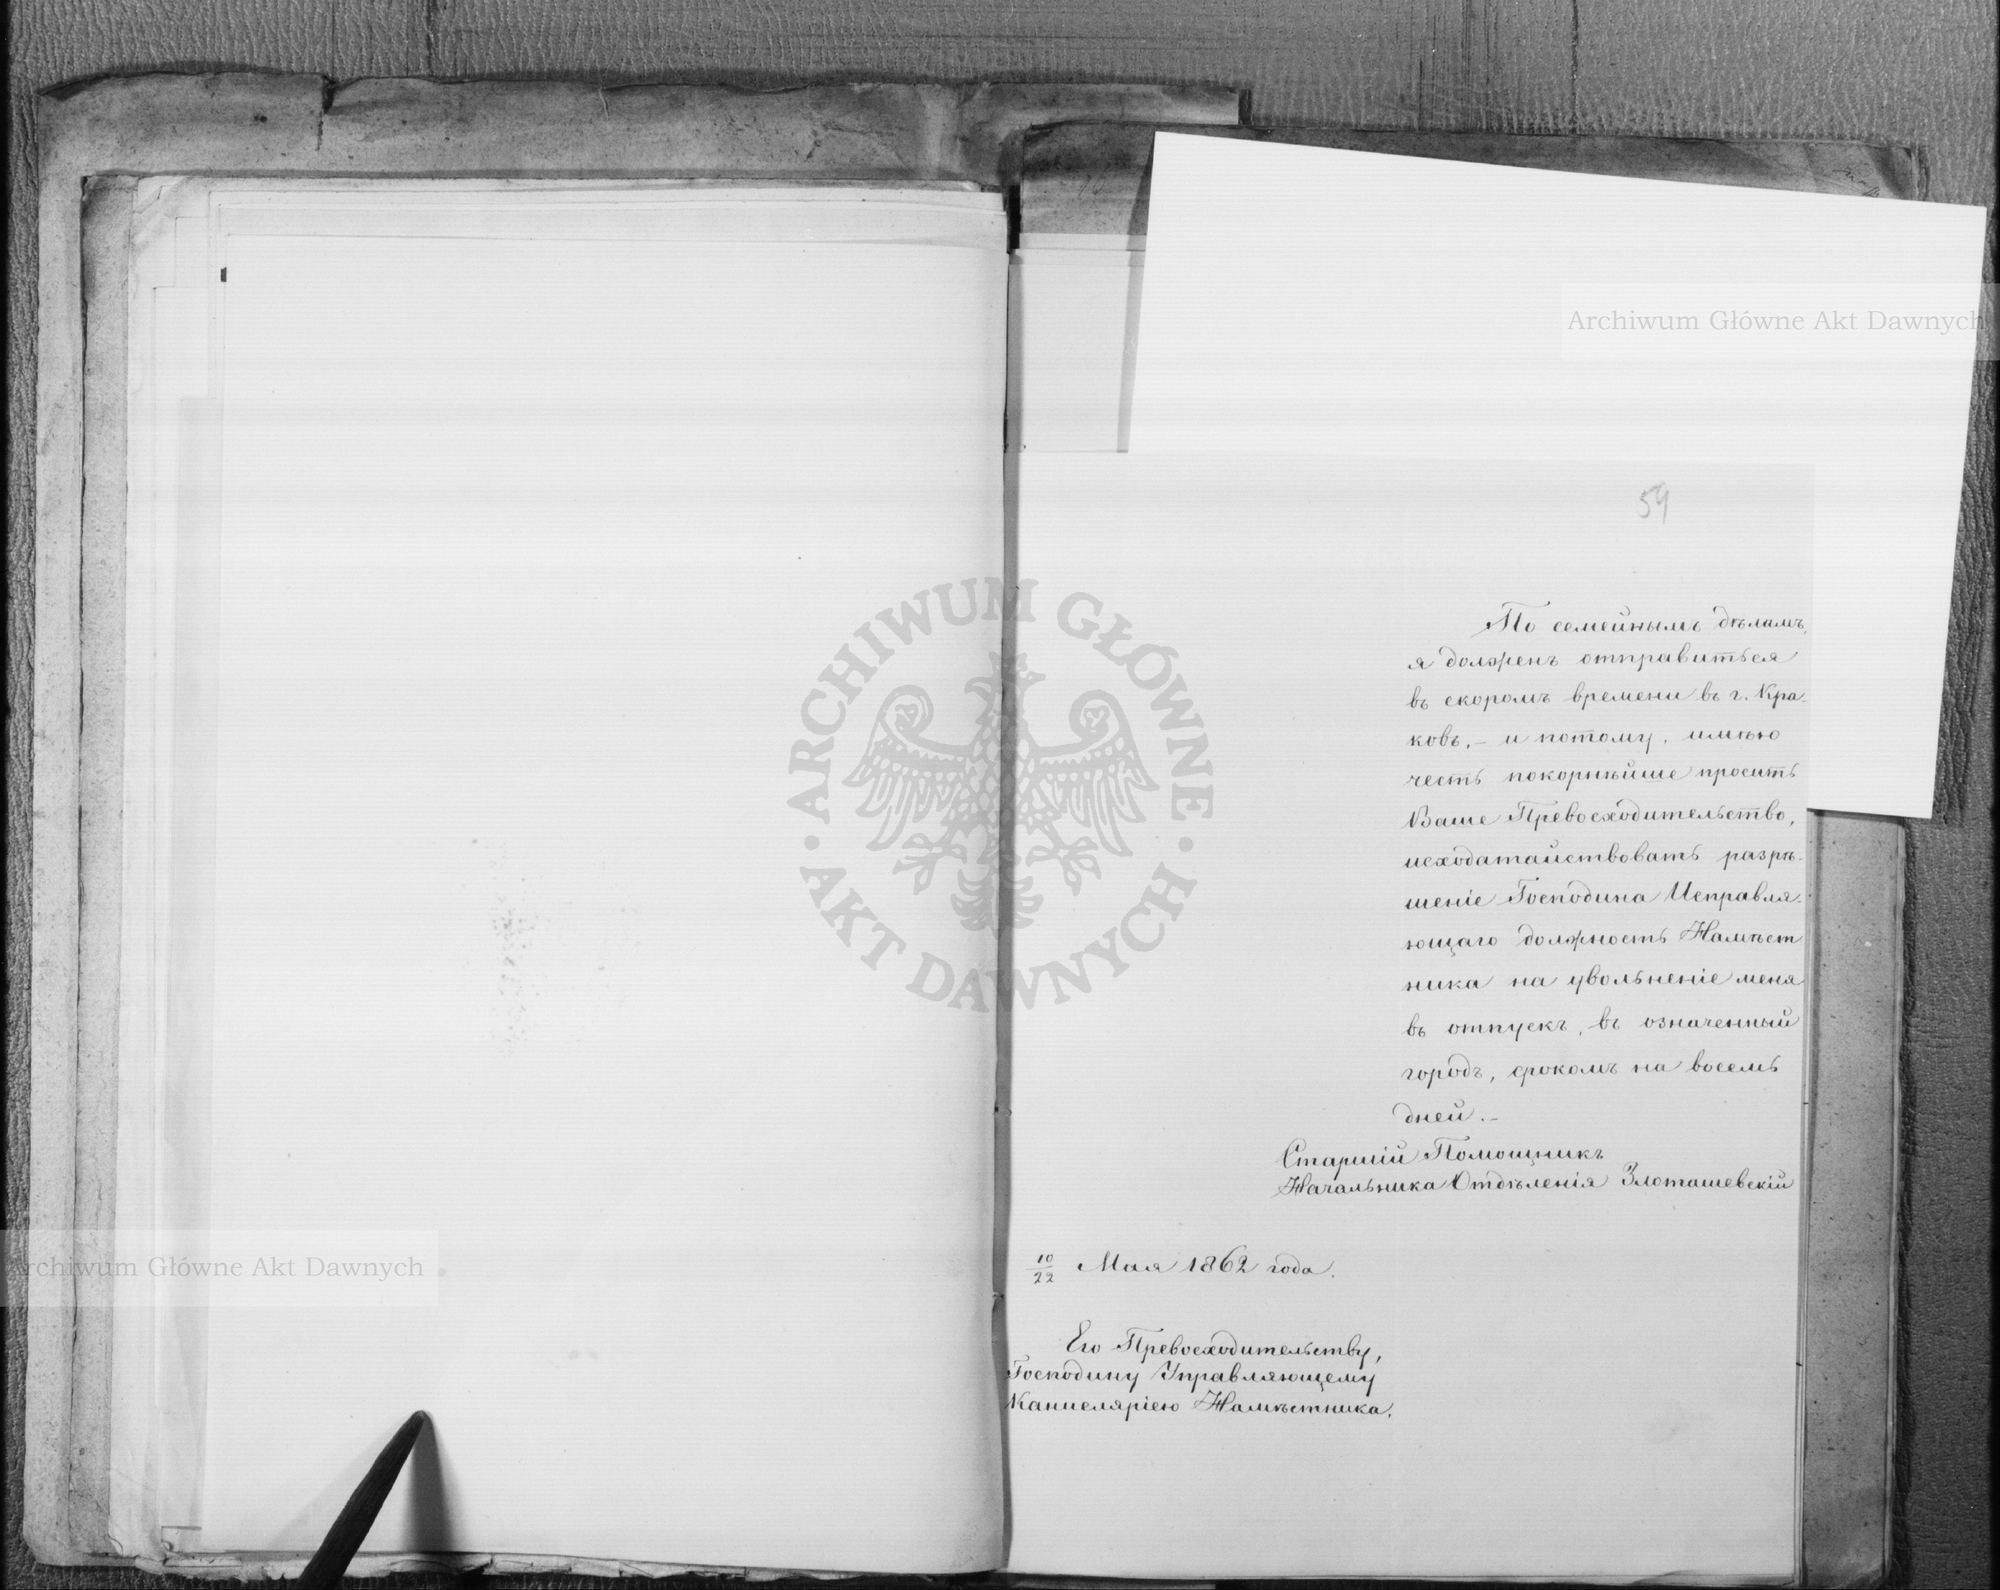 Archiwum Główne Akt Dawnych
59
По семейнымъ дѣламъ,
я долженъ отправиться
въ скоромъ времени въ г. Кра-
ковъ, – и потому, имѣю
честь покорнѣйше просить
Ваше Превосходительство,
исходатайствовать разрѣ-
шеніе Господина Исправля-
ющаго должность Намѣст
ника на увольненіе меня
въ отпускъ, въ означенный
городъ, срокомъ на восемь
дней. –
Старшій Помощникъ
Начальника Отдѣленія Злоташевскій
10/22 Мая 1862 года.
Его Превосходительству,
Господину Управляющему
Канцеляріею Намѣстника.
ARCHIWUM GŁÓWNE
· AKT DAWNYCH ·
Archiwum Główne Akt Dawnych